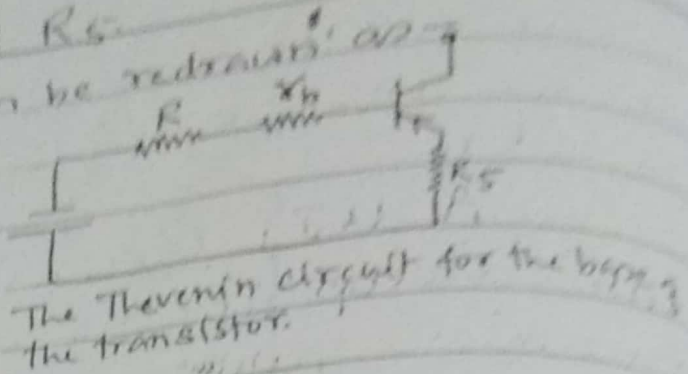 R5.
be redrawn as
R
R5
The Thevenin circuit for the base of
the transistor.